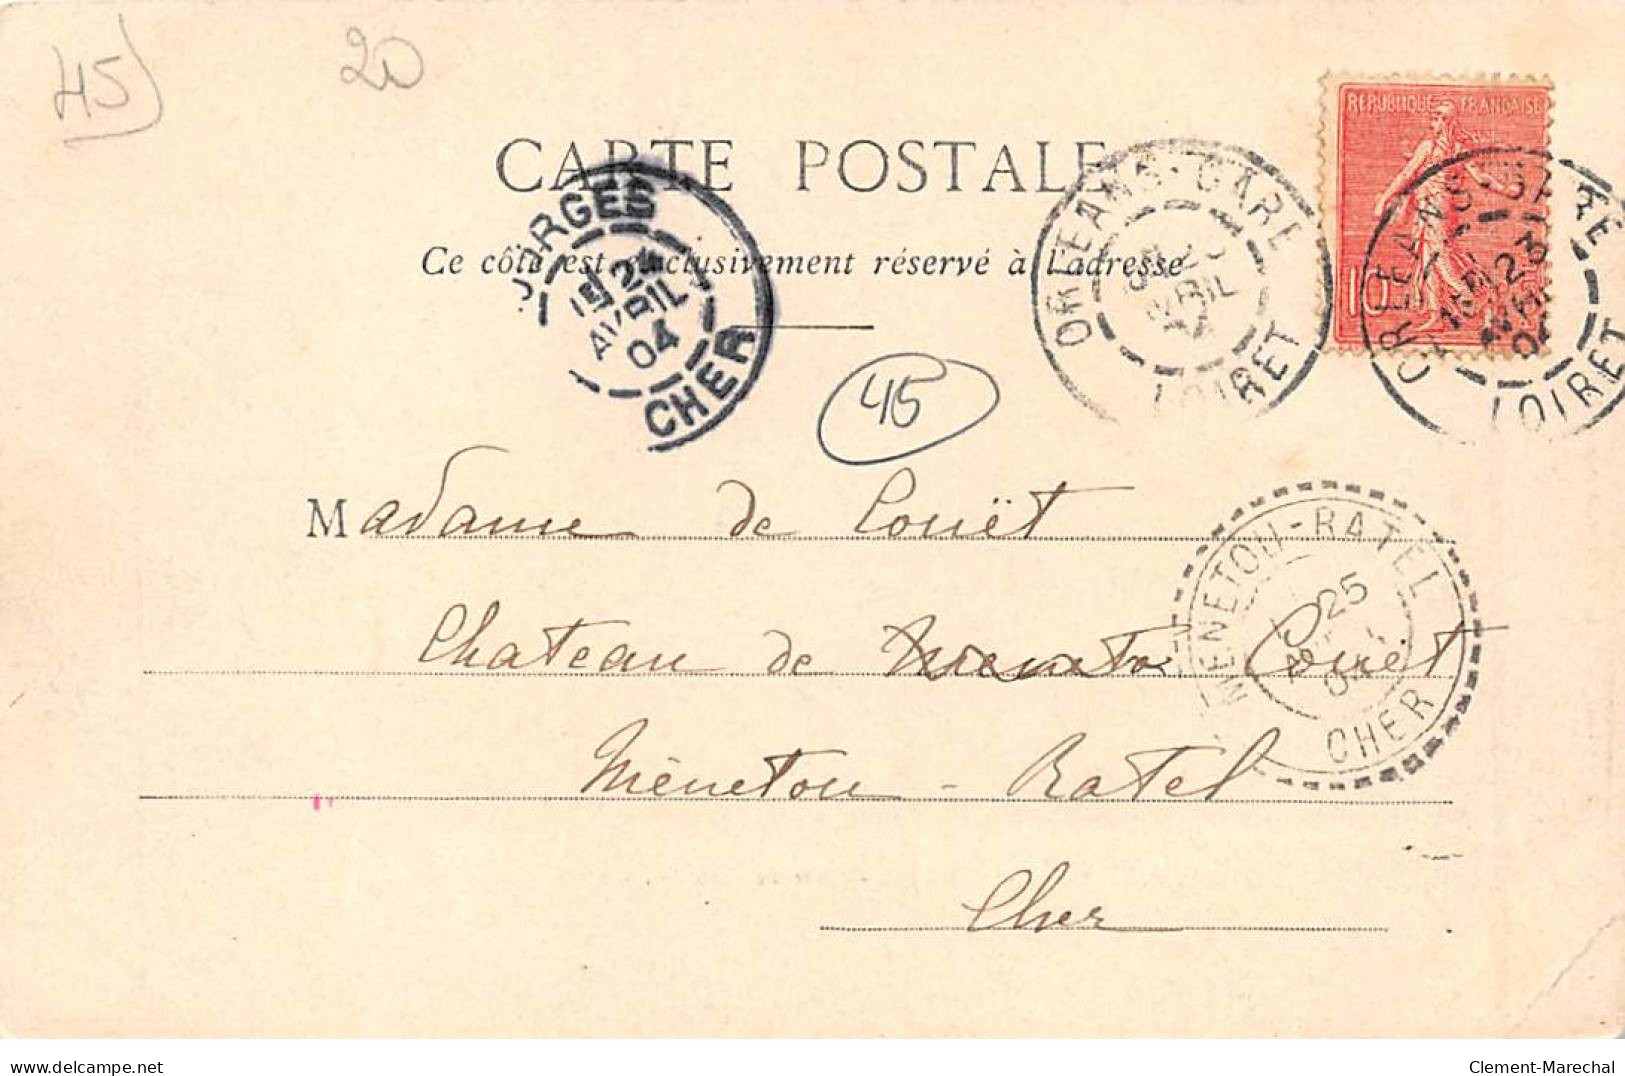 45
20
CARTE POSTALE
Ce côté est exclusivement réservé à l'adresse
RÉPUBLIQUE FRANÇAISE
10
ORLEANS-GARE
23
AVRIL
04
LOIRET
ORLEANS-GARE
AVRIL
LOIRET
AVRIL
04
CHER
45
Madame de Couët
Chateau de Couet
Mènetou-Ratel
Cher
MENETOU-RATEL
25
04
CHER
Clement-Marechal